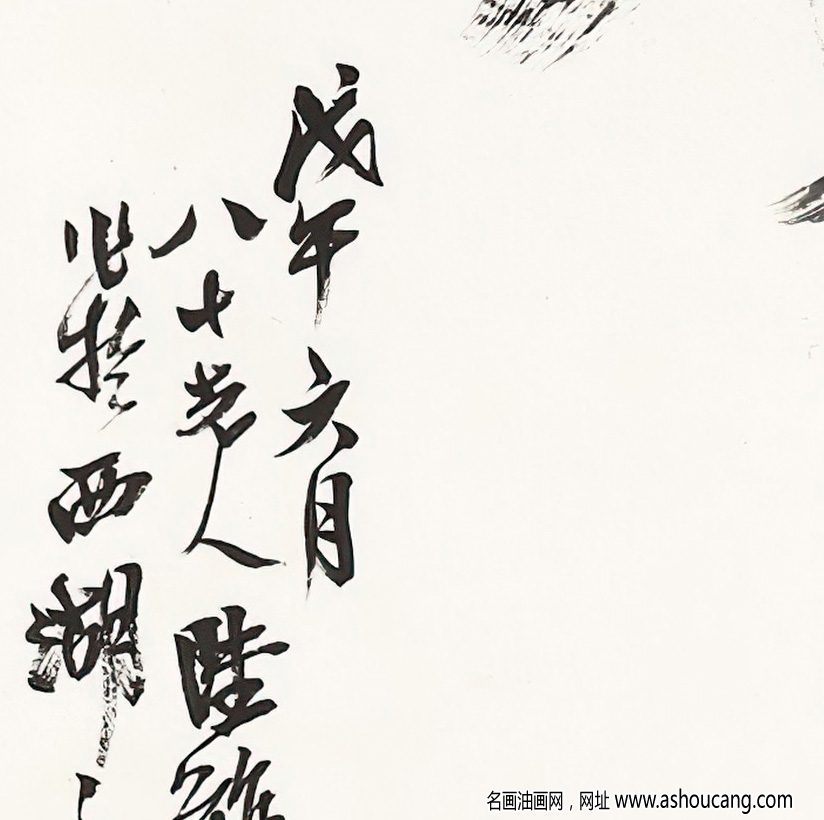 戊午六月
八十老人陸維
作於西湖
名画油画网，网址 www.ashoucang.com